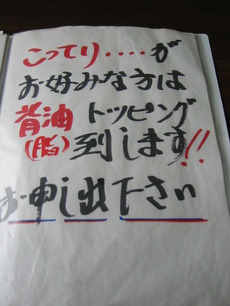 こってり.....が
お好みな方は
背油トッピング
(脂)到します!!
お申し出下さい